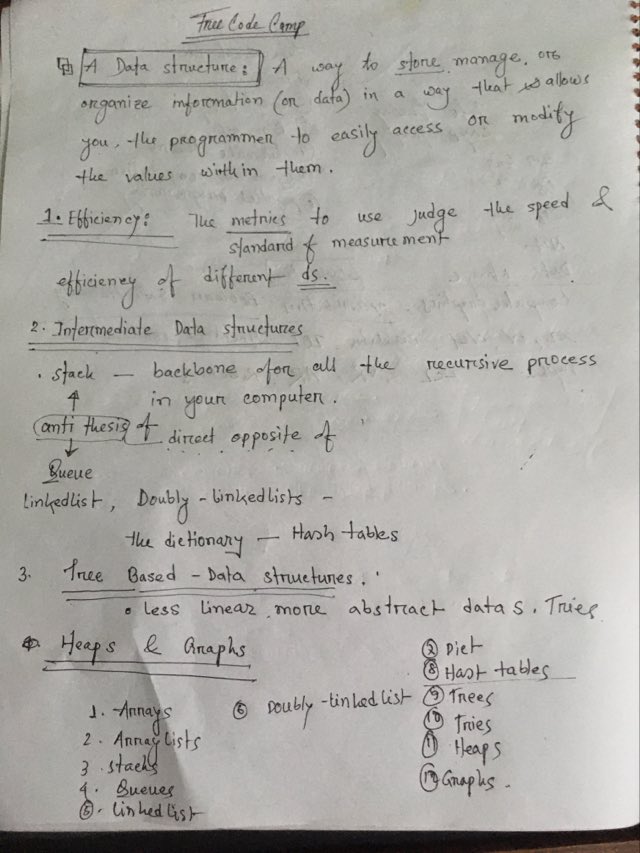 Free Code Camp
A Data structure: A way to store, manage, or
organize information (or data) in a way that allows
you, the programmer to easily access or modify
the values within them.
1. Efficiency: The metrics to use judge the speed &
standard of measurement
efficiency of different ds.
2. Intermediate Data structures
. stack — backbone for all the recursive process
in your computer.
anti thesis of direct opposite of
Queue
Linkedlist, Doubly-linkedlists —
the dictionary — Hash tables
3. Tree Based - Data structures.
• Less linear, more abstract data s. Tries
Heaps & Graphs
1. Arrays
2. Array Lists
3. stacks
4. Queues
5. linkedlist
6 Doubly-linkedlist
Dict
8 Hash tables
9 Trees
10 Tries
11 Heaps
12 Graphs.